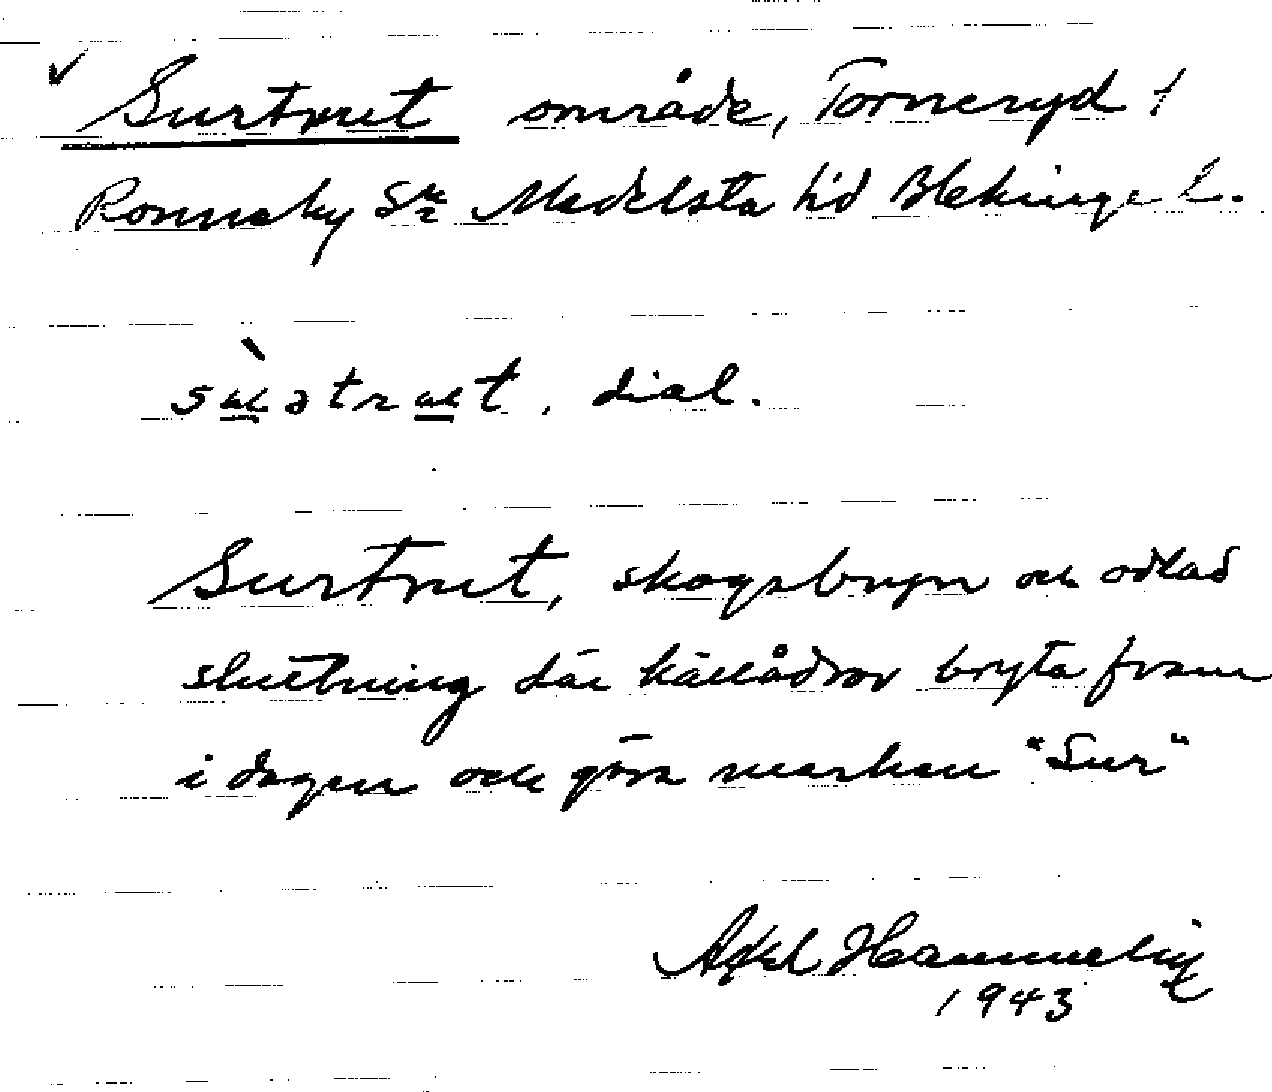 ✓ Surtruet område, Torneryd 1
Ronneby Sn Medelsta hd Blekinge L.
sùətrut, dial.
Surtruet, skogsbryn och odlad
sluttning där källådror bryta fram
i dagen och göra marken "Sur"
Axel
1943